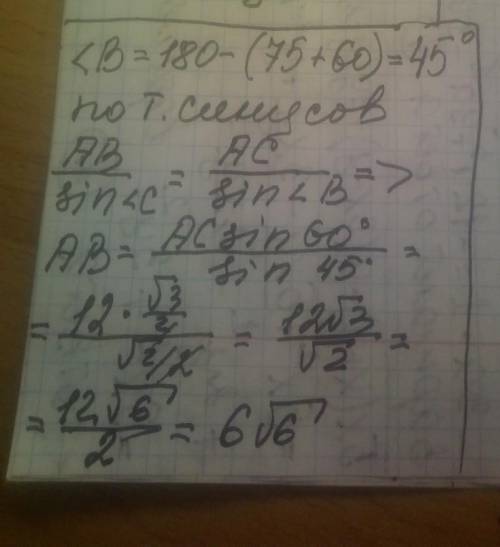 <B = 180 - (75+60) = 45°
по т. синусов
AB/sin<C = AC/sin<B =>
AB = AC sin 60°/sin 45° =
= 12 · √3/2/√2/2 = 12√3/√2 =
= 12√6/2 = 6√6